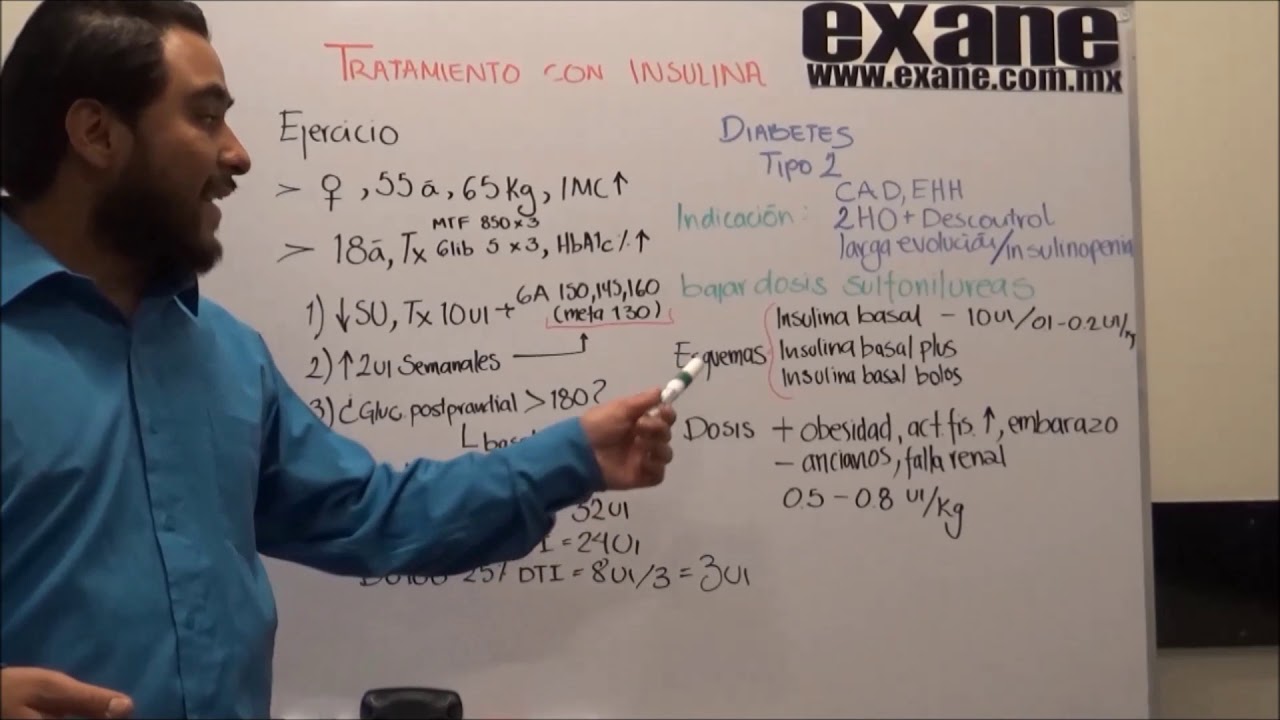 exane
www.exane.com.mx
TRATAMIENTO CON INSULINA
Ejercicio
> ♀, 55ā, 65kg, IMC↑
MTF 850 x 3
> 18ā, Tx Glib 5 x 3, HbA1c %↑
1) ↓SU, Tx 10UI + GA 150, 145, 160
(meta 130)
2) ↑2UI Semanales
3) ¿Gluc. postprandial > 180?
32UI
= 24UI
25% DTI = 8UI/3 = 3UI
DIABETES
Tipo 2
CAD, EHH
Indicación: 2HO + Descontrol
larga evolución/insulinopenia
bajar dosis sulfonilureas
Esquemas
Insulina basal - 10UI/01-0.2UI/kg
Insulina basal plus
Insulina basal bolos
Dosis + obesidad, act. fis. ↑, embarazo
- ancianos, falla renal
0.5 - 0.8 UI/kg